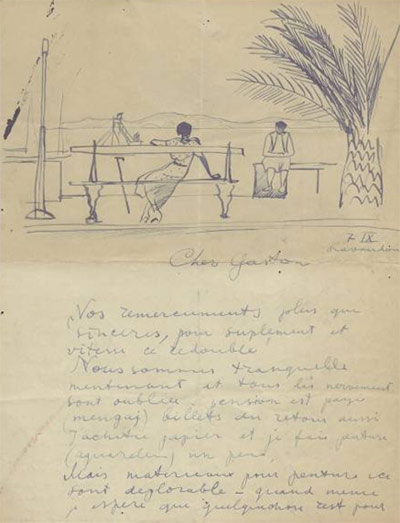 7 IX
Lavandou
Cher Gaston
Vos remerciments plus que
sinceres, pour suplement et
vitesu ce redouble
Nous sommes tranquelle
mentinant et tous les
sont oublié. pension est payé
billets du retour aussi
J'achitre papier et je fais
(aquarelles) un peu,
Mais materieaux pour penture ice
sont deplorable – quand meme
j espere que quelquechose rest pour